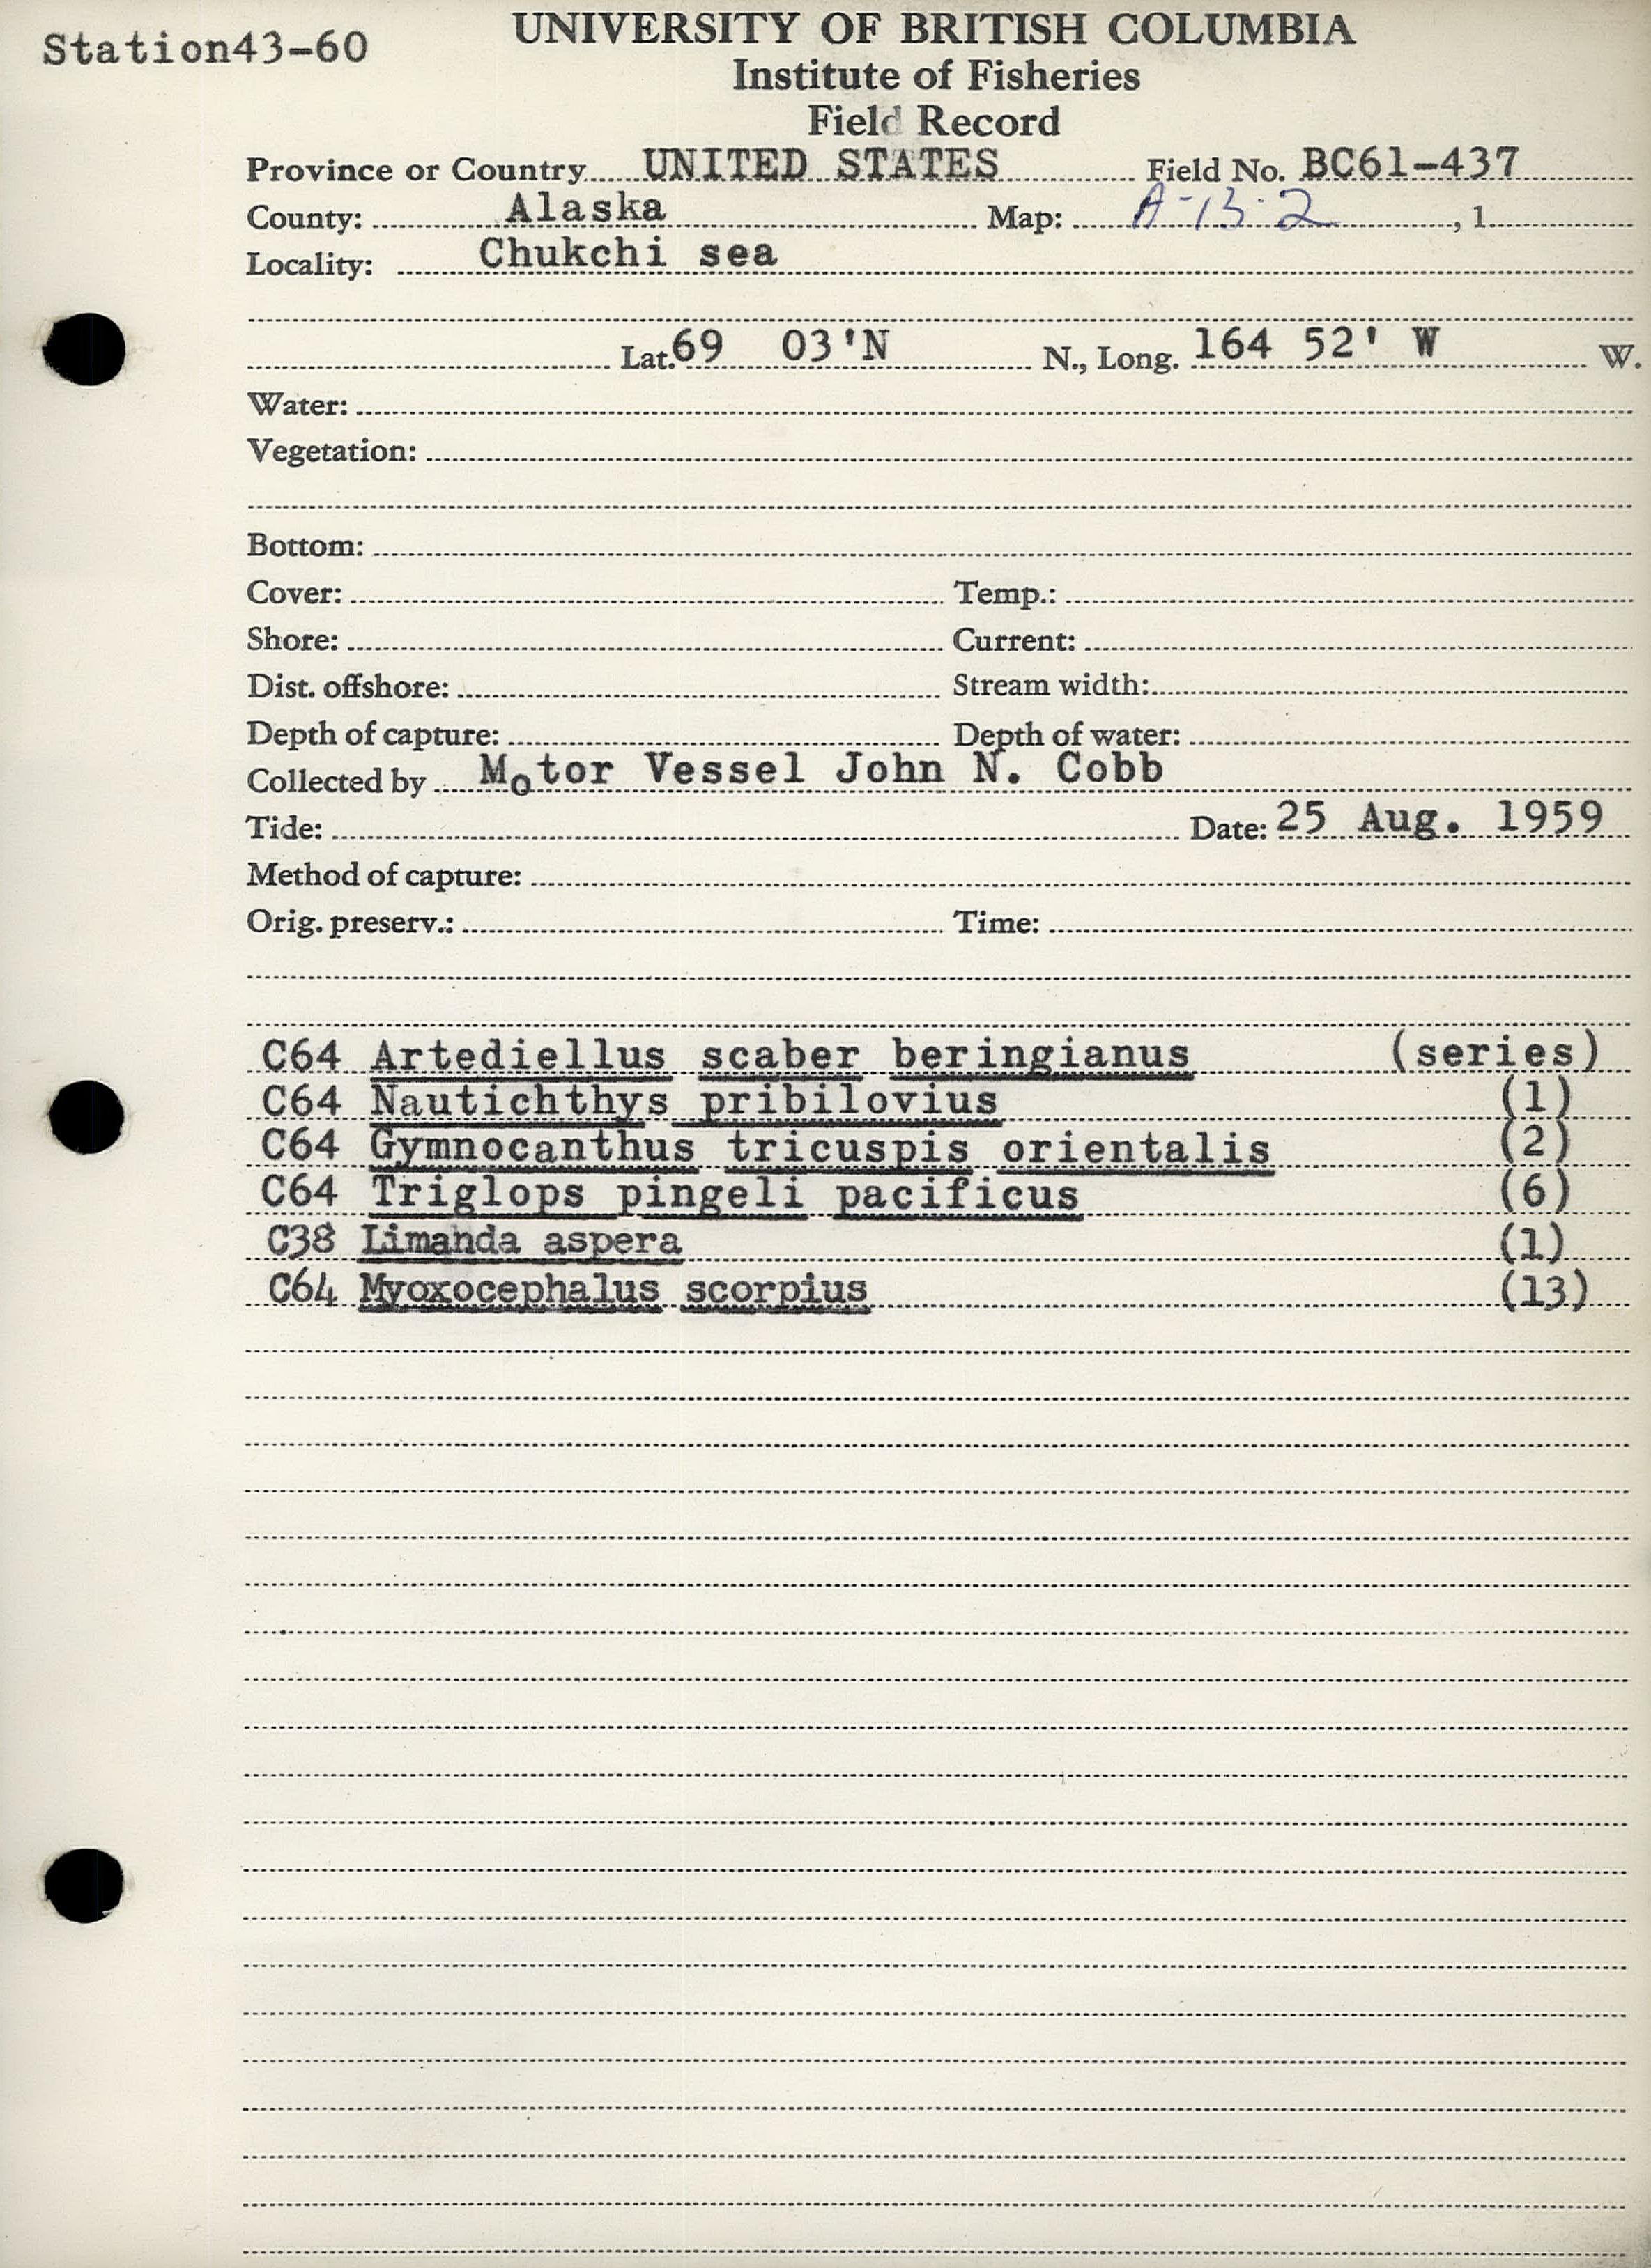 Station43-60
UNIVERSITY OF BRITISH COLUMBIA
Institute of Fisheries
Field Record
Province or Country UNITED STATES Field No. BC61-437
County: Alaska Map: A-13-2, 1
Locality: Chukchi sea
Lat. 69 03'N N., Long. 164 52' W W.
Water:
Vegetation:
Bottom:
Cover: Temp.:
Shore: Current:
Dist. offshore: Stream width:
Depth of capture: Depth of water:
Collected by Motor Vessel John N. Cobb
Tide: Date: 25 Aug. 1959
Method of capture:
Orig. preserv.: Time:
C64 Artediellus scaber beringianus (series)
C64 Nautichthys pribilovius (1)
C64 Gymnocanthus tricuspis orientalis (2)
C64 Triglops pingeli pacificus (6)
C38 Limanda aspera (1)
C64 Myoxocephalus scorpius (13)